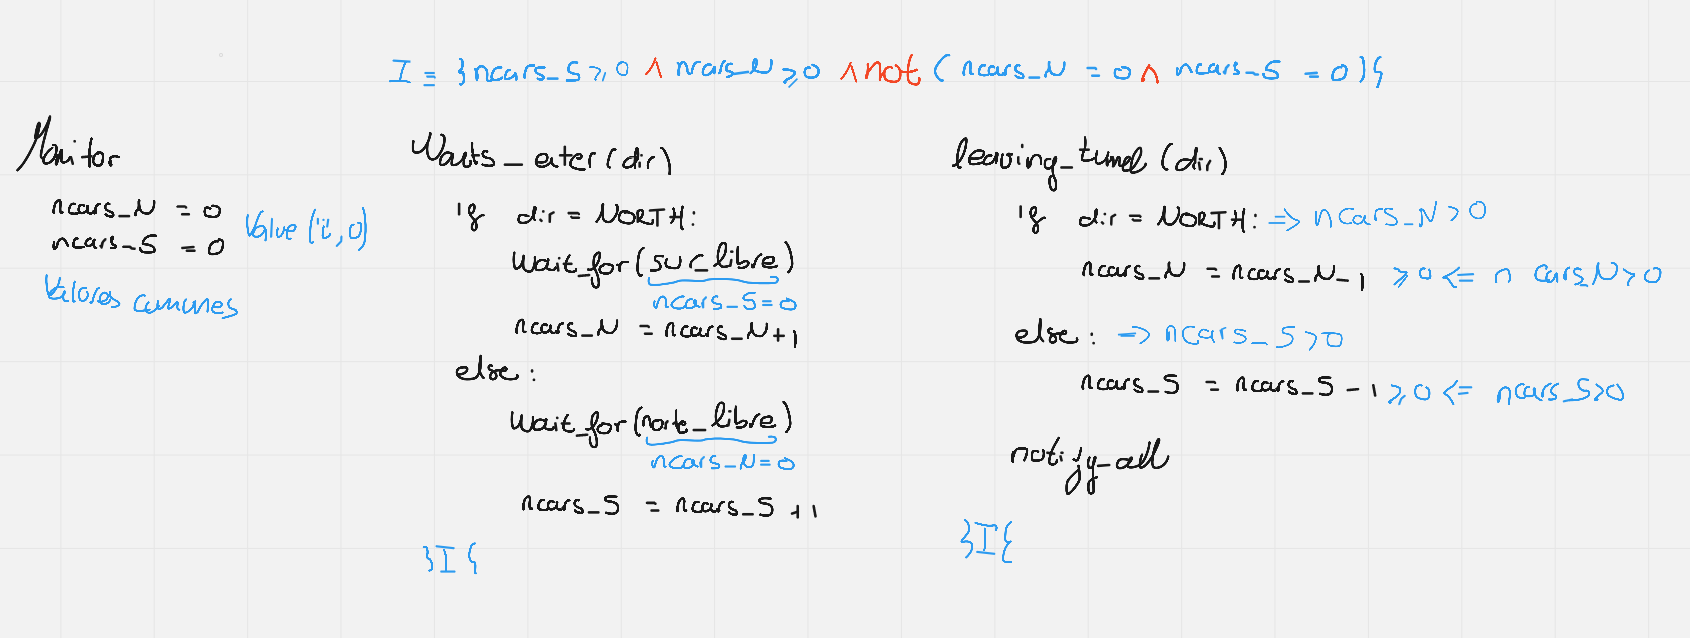 I = }ncars_S ≥ 0 ∧ ncars_N ≥ 0 ∧ not ( ncars_N = 0 ∧ ncars_S = 0 ){
Monitor
ncars_N = 0
ncars_S = 0
Value ('i', 0)
Valores comunes
Waits_enter (dir)
if dir = NORTH:
Wait_for (sur_libre)
ncars_S = 0
ncars_N = ncars_N + 1
else :
Wait_for (norte_libre)
ncars_N = 0
ncars_S = ncars_S + 1
}I{
leaving_tunnel (dir)
if dir = NORTH: => ncars_N > 0
ncars_N = ncars_N - 1 ≥ 0 <= ncars_N > 0
else : => ncars_S > 0
ncars_S = ncars_S - 1 ≥ 0 <= ncars_S > 0
notify_all
}I{